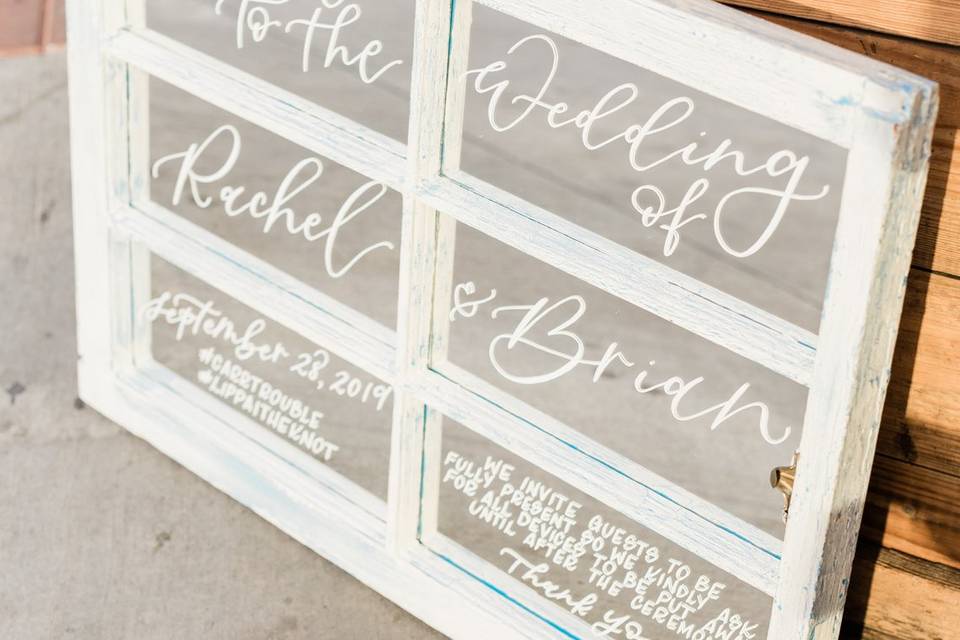 To The
Wedding
of
Rachel
& Brian
September 28, 2019
#CARRTROUBLE
#LIPPAITHEKNOT
WE INVITE GUESTS TO BE
FULLY PRESENT SO WE KINDLY ASK
FOR ALL DEVICES TO BE PUT AWAY
UNTIL AFTER THE CEREMONY
Thank yo